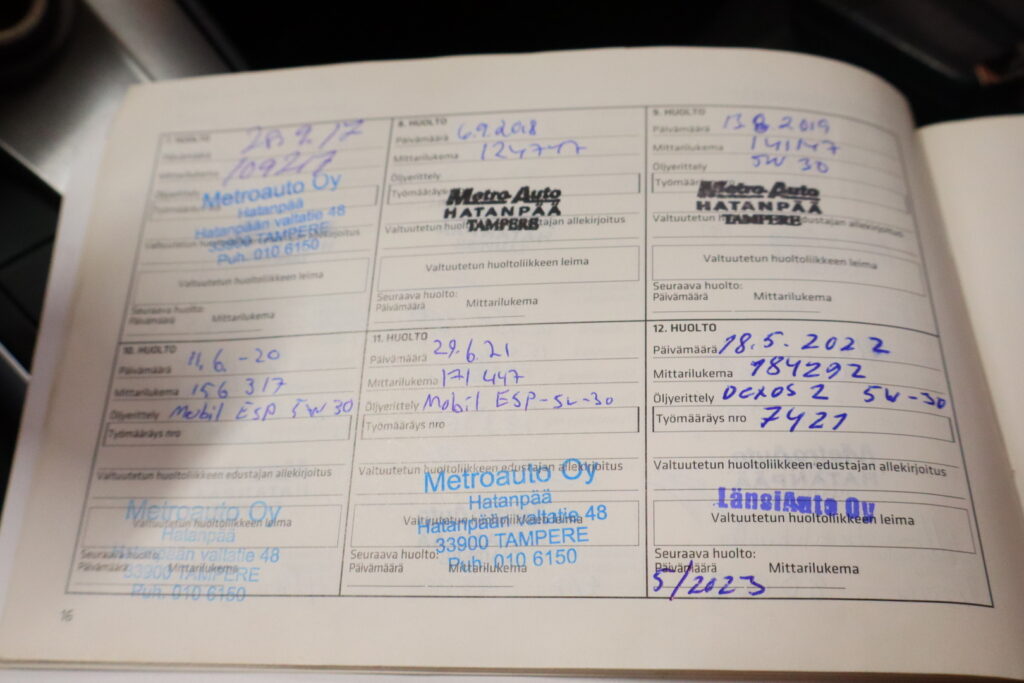 7. HUOLTO
28.9.17
Päivämäärä
Mittarilukema
Öljyerittely
Metroauto Oy
Hatanpää
Hatanpään valtatie 48
33900 TAMPERE
Puh. 010 6150
Valtuutetun huoltoliikkeen leima
Seuraava huolto:
Päivämäärä Mittarilukema
8. HUOLTO
Päivämäärä 6.9.2018
Mittarilukema 124777
Öljyerittely
Työmääräys
Metro Auto
HATANPÄÄ
TAMPERE
Valtuutetun huoltoliikkeen edustajan allekirjoitus
Valtuutetun huoltoliikkeen leima
Seuraava huolto:
Päivämäärä Mittarilukema
9. HUOLTO
Päivämäärä 13.8.2019
Mittarilukema 141147
Öljyerittely 5W30
Metro Auto
HATANPÄÄ
TAMPERE
Valtuutetun huoltoliikkeen leima
Seuraava huolto:
Päivämäärä Mittarilukema
10. HUOLTO
Päivämäärä 11.6.-20
Mittarilukema 156 317
Öljyerittely Mobil ESP 5W30
Työmääräys nro
Valtuutetun huoltoliikkeen edustajan allekirjoitus
Metroauto Oy
Valtuutetun huoltoliikkeen leima
Hatanpää
Hatanpään valtatie 48
Seuraava huolto:
33900 TAMPERE
Päivämäärä Mittarilukema
Puh. 010 6150
11. HUOLTO
Päivämäärä 29.6.21
Mittarilukema 171 447
Öljyerittely Mobil ESP-5W-30
Työmääräys nro
Valtuutetun huoltoliikkeen edustajan allekirjoitus
Metroauto Oy
Hatanpää
Valtuutetun huoltoliikkeen leima
Hatanpään valtatie 48
33900 TAMPERE
Seuraava huolto:
Puh. 010 6150
Päivämäärä Mittarilukema
12. HUOLTO
Päivämäärä 18.5.2022
Mittarilukema 184292
Öljyerittely DEXOS 2 5W-30
Työmääräys nro 7421
Valtuutetun huoltoliikkeen edustajan allekirjoitus
LänsiAuto Oy
Valtuutetun huoltoliikkeen leima
Seuraava huolto:
Päivämäärä Mittarilukema
5/2023
16